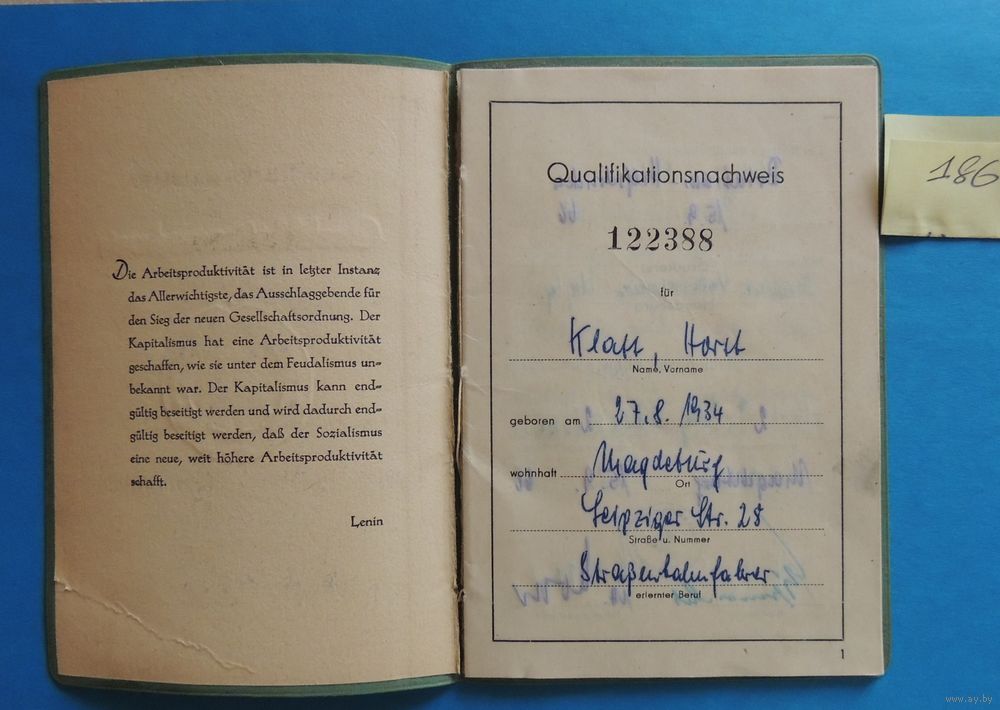 Die Arbeitsproduktivität ist in letzter Instanz
das Allerwichtigste, das Ausschlaggebende für
den Sieg der neuen Gesellschaftsordnung. Der
Kapitalismus hat eine Arbeitsproduktivität
geschaffen, wie sie unter dem Feudalismus un-
bekannt war. Der Kapitalismus kann end-
gültig beseitigt werden und wird dadurch end-
gültig beseitigt werden, daß der Sozialismus
eine neue, weit höhere Arbeitsproduktivität
schafft.
Lenin
Qualifikationsnachweis
122388
für
Klatt, Horst
Name, Vorname
geboren am 27.8.1934
wohnhaft Magdeburg
Ort
Leipziger Str. 28
Straße u. Nummer
Straßenbahnfahrer
erlernter Beruf
1
186
www.ay.by